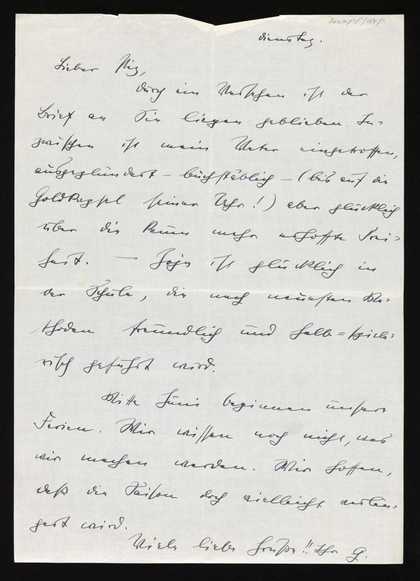 Dienstag.
Lieber
durch ein Versehen ist der
Brief an Sie liegen geblieben. In-
zwischen ist mein Vater eingetroffen,
ausgeplündert – buchstäblich – (bis auf die
Goldkapsel seiner Uhr!) aber glücklich
über die kaum mehr erhoffte Frei-
heit. — ist glücklich in
der Schule, die nach neuesten Me-
thoden freundlich und halb=spiele-
risch geführt wird.
Mitte Juni beginnen unsere
Ferien. Wir wissen noch nicht, was
wir machen werden. Wir hoffen,
daß die Saison doch vielleicht verlän-
gert wird.
Viele liebe Grüße!! Ihr G.